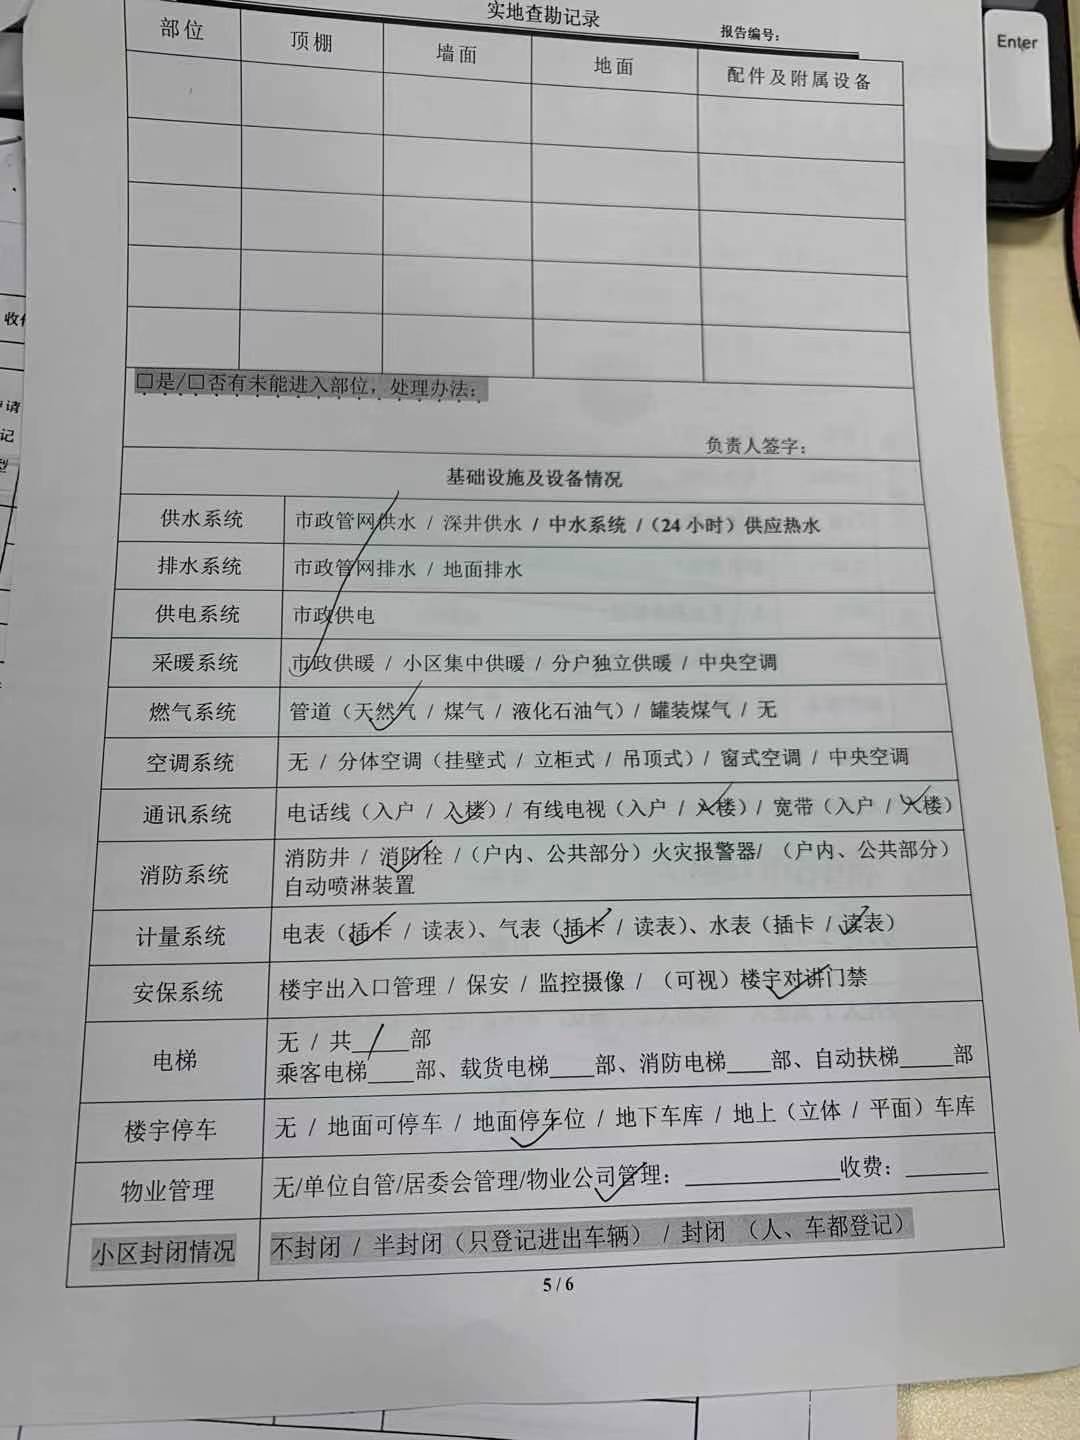 实地查勘记录
报告编号：
部位 顶棚 墙面 地面 配件及附属设备
□是/□否有未能进入部位，处理办法：
负责人签字：
基础设施及设备情况
供水系统 市政管网供水 / 深井供水 / 中水系统 /（24 小时）供应热水
排水系统 市政管网排水 / 地面排水
供电系统 市政供电
采暖系统 市政供暖 / 小区集中供暖 / 分户独立供暖 / 中央空调
燃气系统 管道（天然气 / 煤气 / 液化石油气）/ 罐装煤气 / 无
空调系统 无 / 分体空调（挂壁式 / 立柜式 / 吊顶式）/ 窗式空调 / 中央空调
通讯系统 电话线（入户 / 入楼）/ 有线电视（入户 / 入楼）/ 宽带（入户 / 入楼）
消防系统 消防井 / 消防栓 /（户内、公共部分）火灾报警器/ （户内、公共部分）
自动喷淋装置
计量系统 电表（插卡 / 读表）、气表（插卡 / 读表）、水表（插卡 / 读表）
安保系统 楼宇出入口管理 / 保安 / 监控摄像 / （可视）楼宇对讲门禁
电梯 无 / 共____部
乘客电梯____部、载货电梯____部、消防电梯____部、自动扶梯____部
楼宇停车 无 / 地面可停车 / 地面停车位 / 地下车库 / 地上（立体 / 平面）车库
物业管理 无/单位自管/居委会管理/物业公司管理：____________收费：______
小区封闭情况 不封闭 / 半封闭（只登记进出车辆） / 封闭 （人、车都登记）
5 / 6
Enter